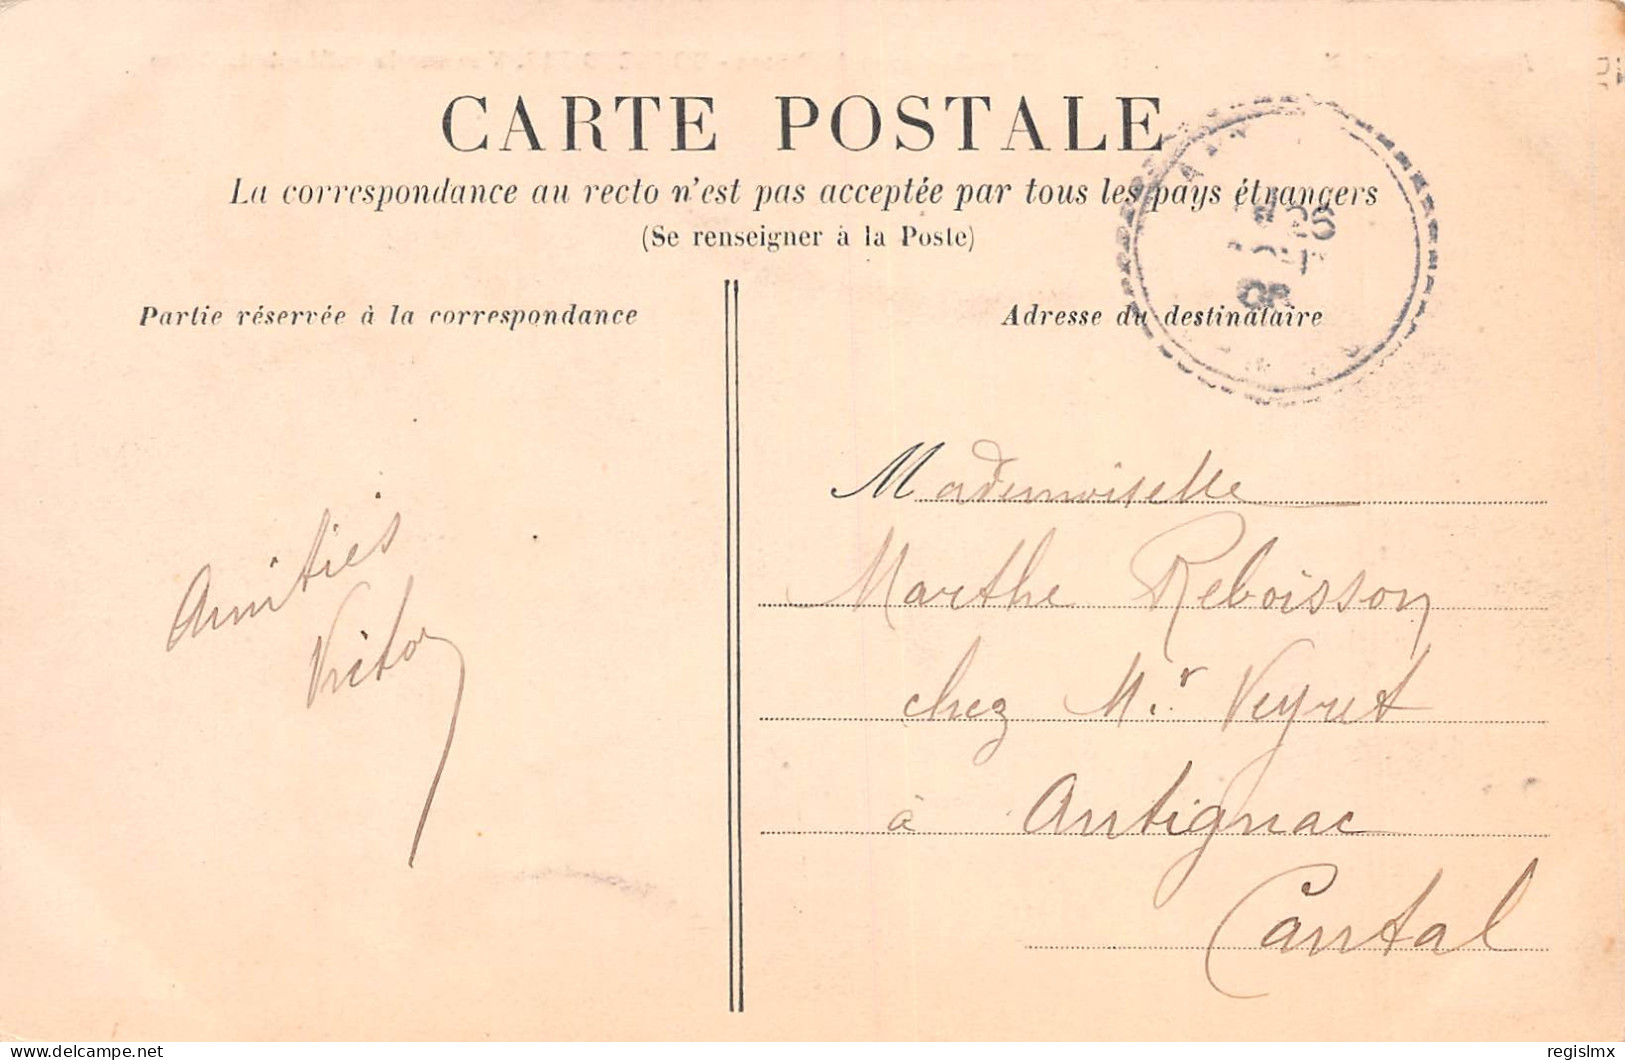 CARTE POSTALE
La correspondance au recto n'est pas acceptée par tous les pays étrangers
(Se renseigner à la Poste)
Partie réservée à la correspondance
Adresse du destinataire
26
08
Amitiés
Victor
Mademoiselle
Marthe Reboisson
chez Mr Veyret
à Antignac
Cantal
regislmx